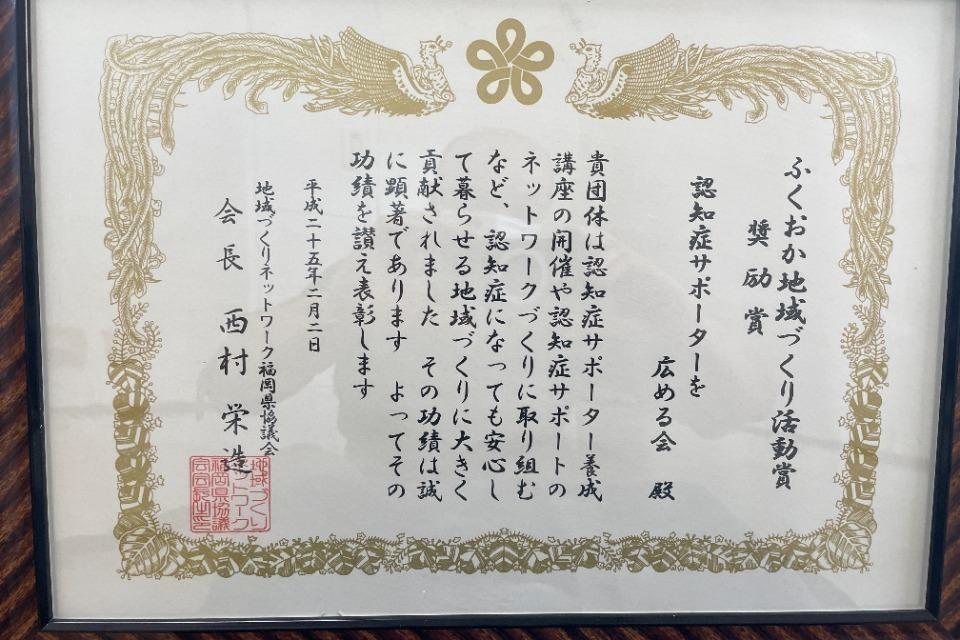 ふくおか地域づくり活動賞
奨励賞
認知症サポーターを
広める会 殿
貴団体は認知症サポーター養成
講座の開催や認知症サポートの
ネットワークづくりに取り組む
など、認知症になっても安心し
て暮らせる地域づくりに大きく
貢献されました その功績は誠
に顕著であります よってその
功績を讃え表彰します
平成二十五年二月二日
地域づくりネットワーク福岡県協議会
会長 西村 栄造
地域づくり
ネットワーク
福岡県協議
会会長之印